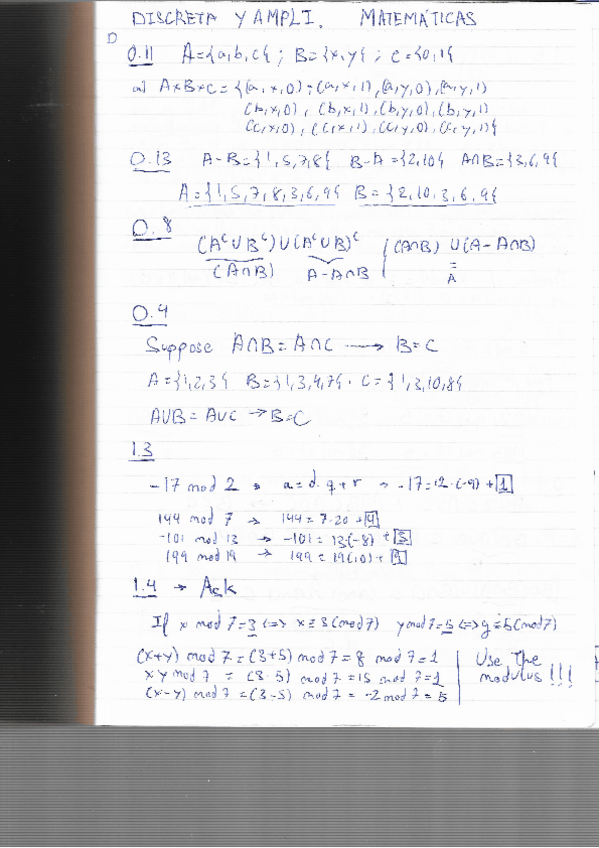 DISCRETA Y AMPLI. MATEMÁTICAS
0.11 A={a,b,c}; B={x,y}; C={0,1}
a) A×B×C={(a,x,0);(a,x,1),(a,y,0),(a,y,1)
(b,x,0), (b,x,1),(b,y,0),(b,y,1)
(c,x,0), (c,x,1),(c,y,0),(c,y,1)}
0.13 A-B={1,5,7,8} B-A={2,10} A∩B={3,6,9}
A={1,5,7,8,3,6,9} B={2,10,3,6,9}
0.8
(Aᶜ∪Bᶜ)∪(Aᶜ∪B)ᶜ | (A∩B) ∪(A-A∩B)
(A∩B) A-A∩B = A
0.4
Suppose A∩B=A∩C → B=C
A={1,2,3} B={1,3,4,7}. C={1,3,10,8}
A∪B=A∪C → B=C
1.3
-17 mod 2 → a=d·q+r → -17=2·(-9)+1
144 mod 7 → 144=7·20+4
-101 mod 13 → -101=13(-8)+3
199 mod 19 → 199=19(10)+9
1.4 → Ask
If x mod 7=3 <=> x≡3(mod7) y mod 7=5 <=> y≡5(mod7)
(x+y) mod 7=(3+5) mod 7=8 mod 7=1
xy mod 7 = (3·5) mod 7=15 mod 7=1
(x-y) mod 7=(3-5) mod 7=-2 mod 7=5
Use The
modulus!!!